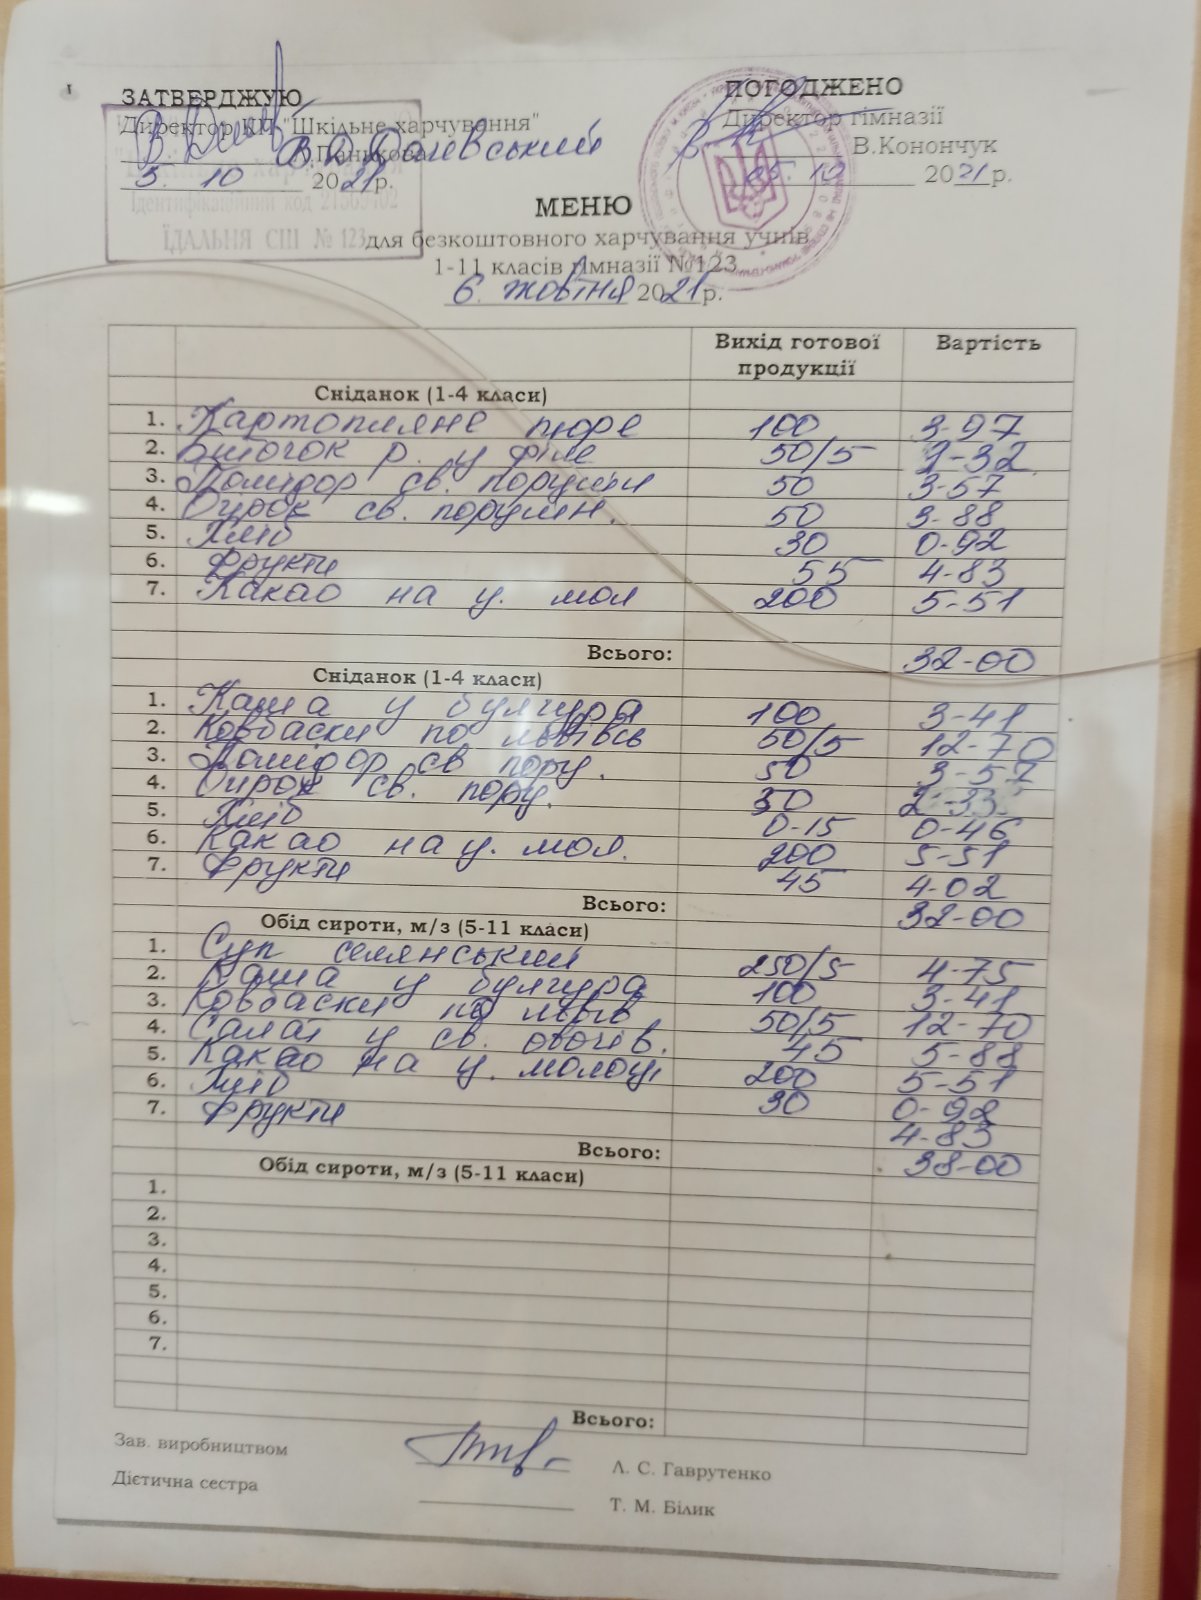 ЗАТВЕРДЖУЮ
Директор КП "Шкільне харчування"
В.Д. Долевський
5. 10 2021р.
Ідентифікаційний код
ЇДАЛЬНЯ СШ № 123
ПОГОДЖЕНО
Директор гімназії
В.Конончук
05. 10 2021р.
МЕНЮ
для безкоштовного харчування учнів
1-11 класів гімназії №123
6. жовтня 2021р.
Вихід готової продукції Вартість
Сніданок (1-4 класи)
1. Картопляне пюре 100 3-97
2. Биточок р. у філе 50/5 9-32
3. Помидор св. порціями 50 3-57
4. Огірок св. порціян. 50 3-88
5. Хліб 30 0-92
6. Фрукти 55 4-83
7. Какао на у. мол 200 5-51
Всього: 32-00
Сніданок (1-4 класи)
1. Каша у булгура 100 3-41
2. Ковбаски по львівсь 50/5 12-70
3. Помідор св порц. 50 3-57
4. Огірок св. порц. 30 2-33
5. Хліб 0-15 0-46
6. Какао на у. мол. 200 5-51
7. Фрукти 45 4-02
Всього: 32-00
Обід сироти, м/з (5-11 класи)
1. Суп селянський 250/5 4-75
2. Каша у булгура 100 3-41
3. Ковбаски по львів 50/5 12-70
4. Салат у св. овочів. 45 5-88
5. Какао на у. молоці 200 5-51
6. Хліб 30 0-92
7. Фрукти 4-83
Всього: 38-00
Обід сироти, м/з (5-11 класи)
1.
2.
3.
4.
5.
6.
7.
Всього:
Зав. виробництвом Л. С. Гаврутенко
Дієтична сестра Т. М. Білик